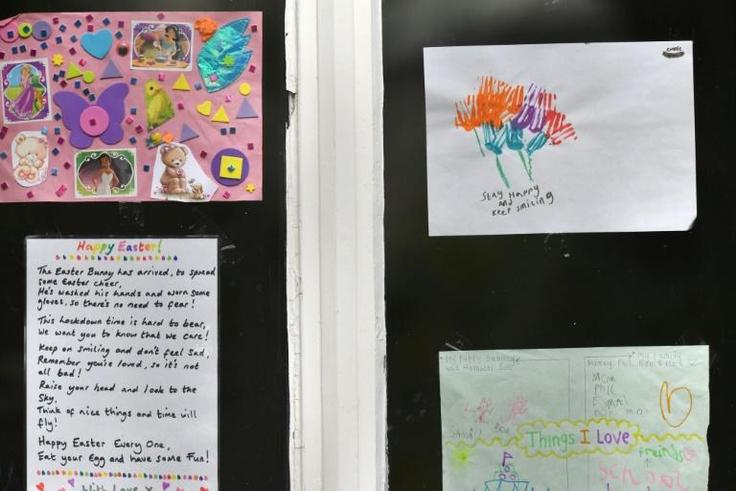 Happy Easter!
The Easter Bunny has arrived, to spread
some Easter cheer,
He's washed his hands and worn some
gloves, so there's no need to fear!
This Lockdown time is hard to bear,
We want you to know that we care!
Keep on smiling and don't feel sad,
Remember you're loved, so it's not
all bad!
Raise your head and look to the
Sky,
Think of nice things and time will
fly!
Happy Easter Every One,
Eat your Egg and have some Fun!
With Love
STAY HAPPY
AND
KEEP SMILING
My Family
Things I Love
friends
School